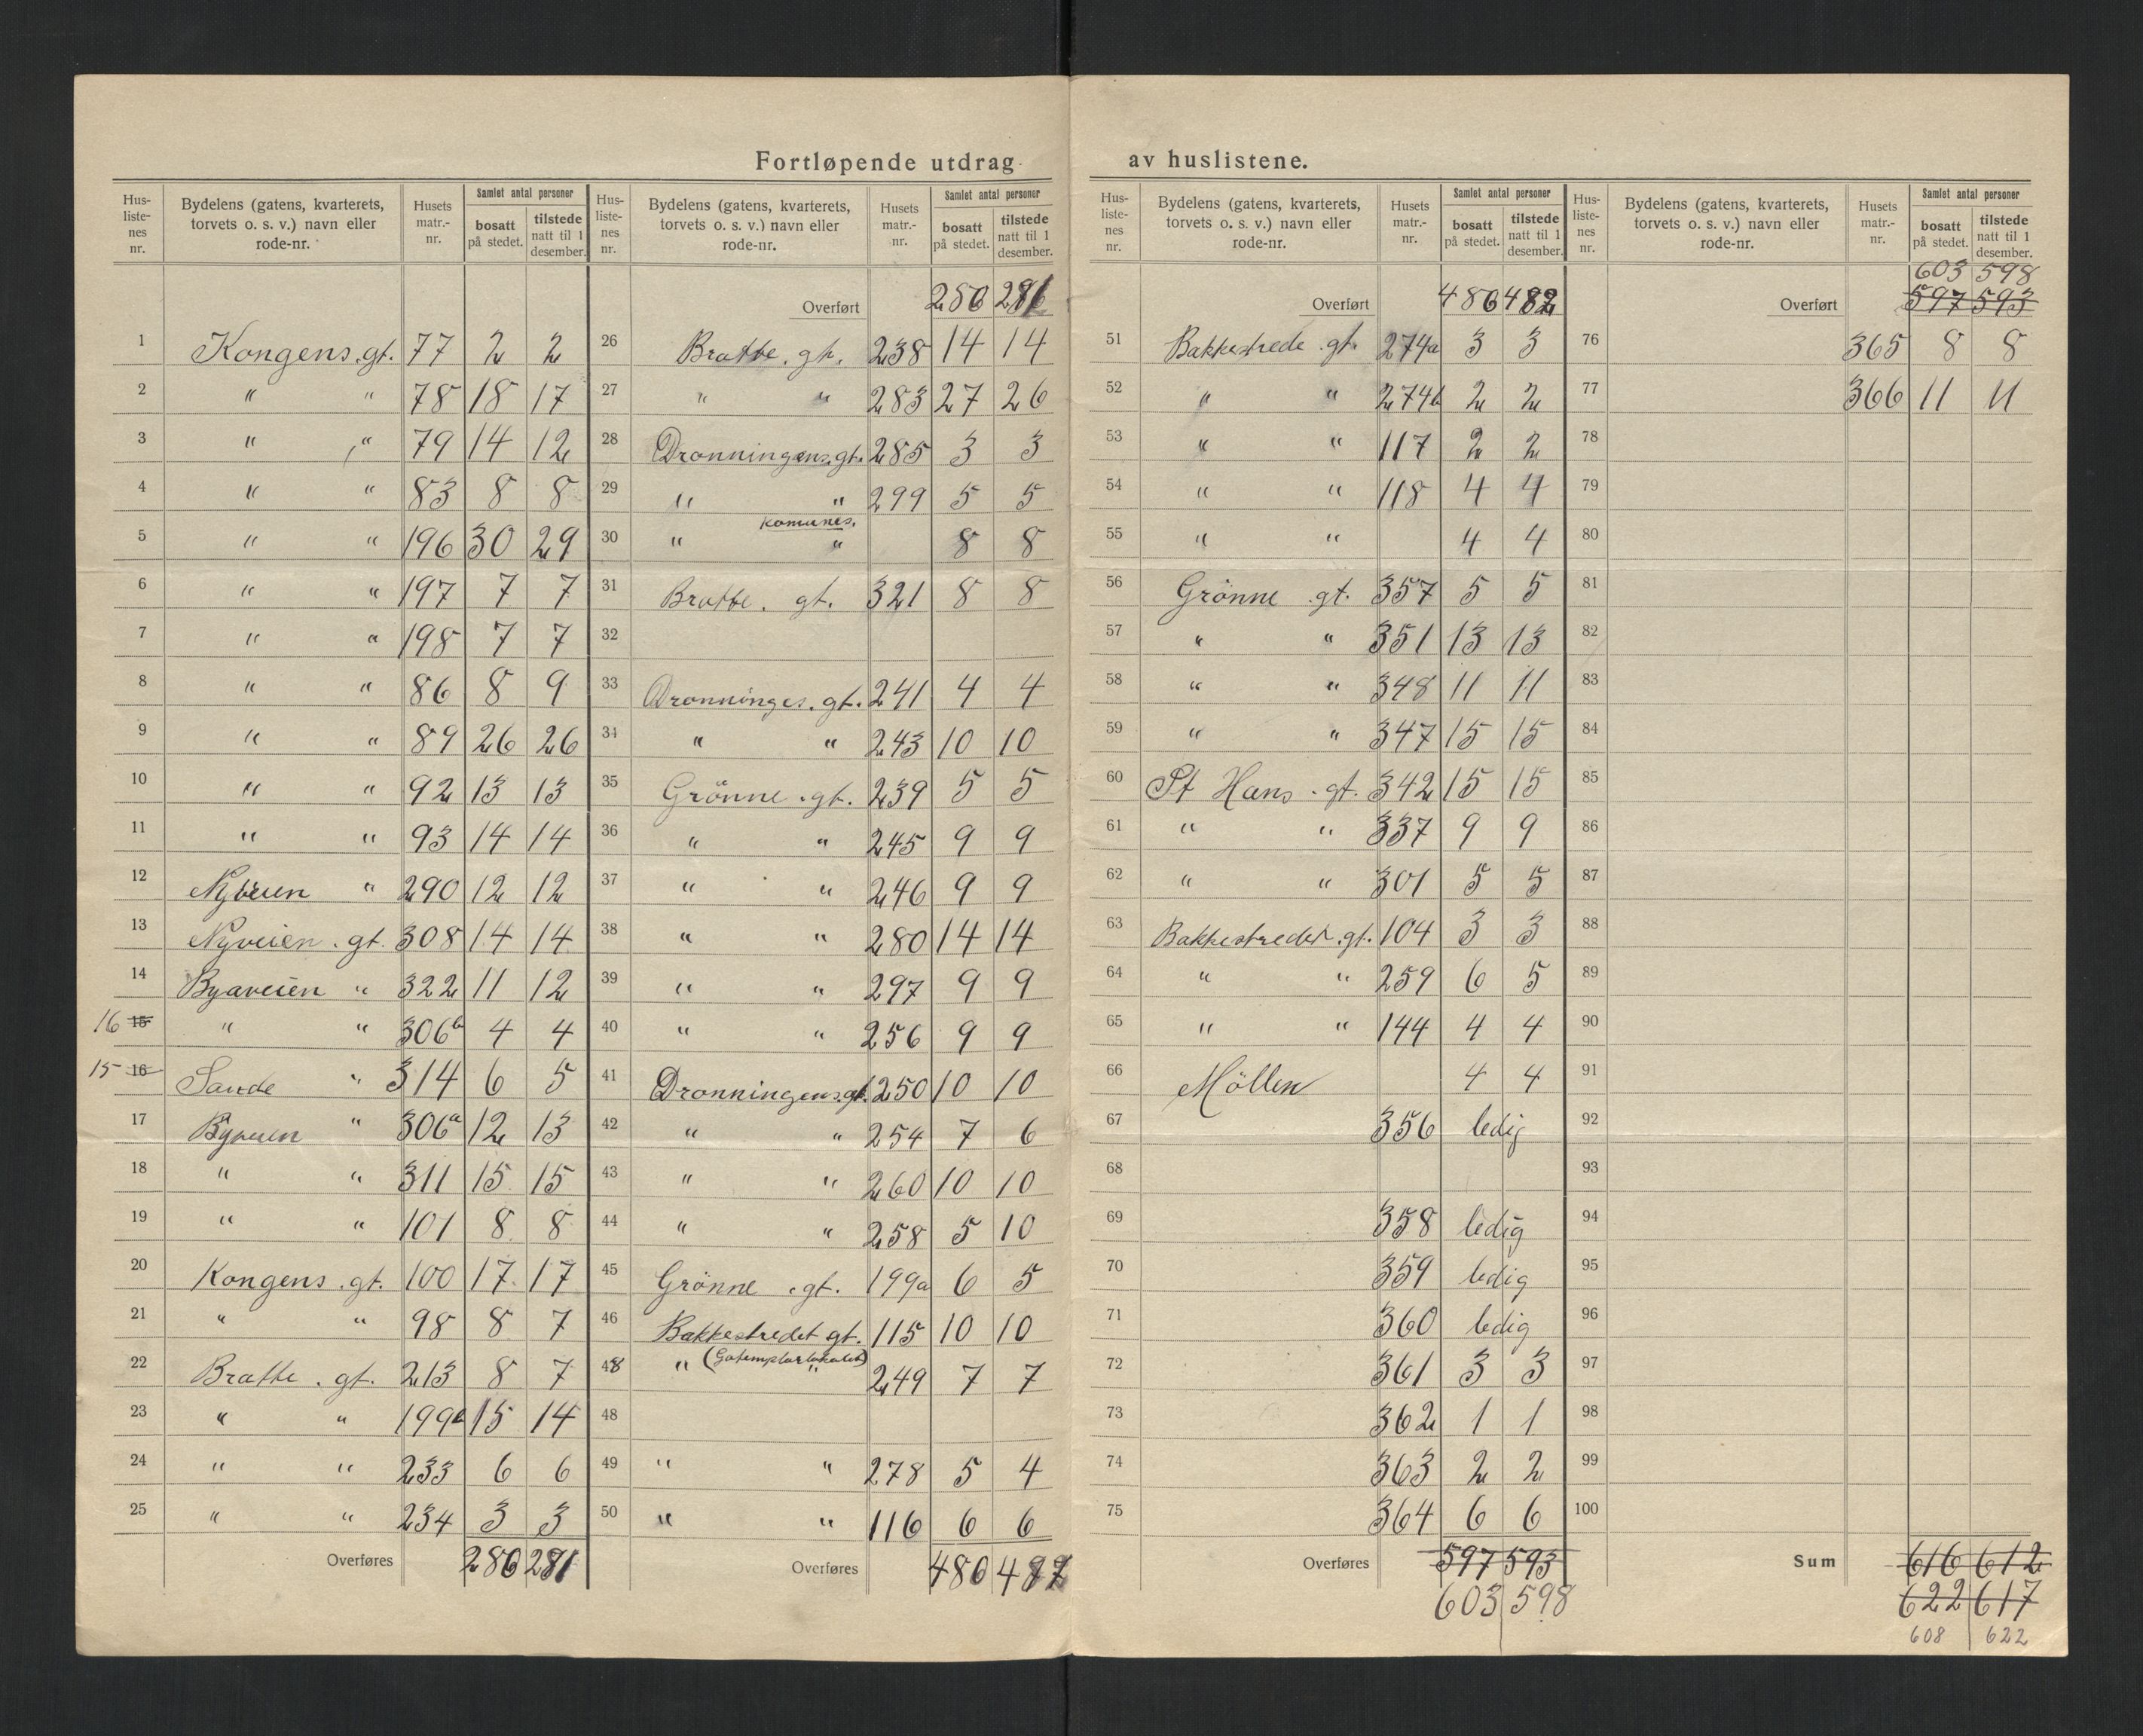 Fortløpende utdrag av huslistene.
Hus-listenes nr. | Bydelens (gatens, kvarterets, torvets o. s. v.) navn eller rode-nr. | Husets matr.-nr. | Samlet antal personer bosatt på stedet. | tilstede natt til 1 desember.
1 Kongens. gt. 77 2 2
2 " " 78 18 17
3 " " 79 14 12
4 " " 83 8 8
5 " " 196 30 29
6 " " 197 7 7
7 " " 198 7 7
8 " " 86 8 9
9 " " 89 26 26
10 " " 92 13 13
11 " " 93 14 14
12 Nyveien " 290 12 12
13 Nyveien . gt. 308 14 14
14 Byaveien " 322 11 12
16 15 " " 306b 4 4
15 16 Sande " 314 6 5
17 Byveien " 306a 12 13
18 " " 311 15 15
19 " " 101 8 8
20 Kongens . gt. 100 17 17
21 " " 98 8 7
22 Bratte . gt. 213 8 7
23 " " 199b 15 14
24 " " 233 6 6
25 " " 234 3 3
Overføres 280 281
Hus-listenes nr. | Bydelens (gatens, kvarterets, torvets o. s. v.) navn eller rode-nr. | Husets matr.-nr. | Samlet antal personer bosatt på stedet. | tilstede natt til 1 desember.
Overført 280 281
26 Bratte . gt. 238 14 14
27 " " 283 27 26
28 Dronningens. gt. 285 3 3
29 " " 299 5 5
30 " komunes. " 8 8
31 Bratte . gt. 321 8 8
32
33 Dronninges. gt. 241 4 4
34 " " 243 10 10
35 Grönne . gt. 239 5 5
36 " " 245 9 9
37 " " 246 9 9
38 " " 280 14 14
39 " " 297 9 9
40 " " 256 9 9
41 Dronningens. gt. 250 10 10
42 " " 254 7 6
43 " " 260 10 10
44 " " 258 5 10
45 Grönne . gt. 199a 6 5
46 Bakkestredet gt. 115 10 10
48 " (Gotemplarlokalet) " 249 7 7
48
49 " " 278 5 4
50 " " 116 6 6
Overføres 486
Hus-listenes nr. | Bydelens (gatens, kvarterets, torvets o. s. v.) navn eller rode-nr. | Husets matr.-nr. | Samlet antal personer bosatt på stedet. | tilstede natt til 1 desember.
Overført 486 482
51 Bakkestrede . gt. 274a 3 3
52 " " 274b 2 2
53 " " 117 2 2
54 " " 118 4 4
55 " " 4 4
56 Grönne . gt. 357 5 5
57 " " 351 13 13
58 " " 348 11 11
59 " " 347 15 15
60 St Hans . gt. 342 15 15
61 " " 337 9 9
62 " " 301 5 5
63 Bakkestredet . gt. 104 3 3
64 " " 259 6 5
65 " " 144 4 4
66 Möllen 4 4
67 356 ledig
68
69 358 ledig
70 359 ledig
71 360 ledig
72 361 3 3
73 362 1 1
74 363 2 2
75 364 6 6
Overføres 597 593
603 598
Hus-listenes nr. | Bydelens (gatens, kvarterets, torvets o. s. v.) navn eller rode-nr. | Husets matr.-nr. | Samlet antal personer bosatt på stedet. | tilstede natt til 1 desember.
603 598
Overført 597 593
76 365 8 8
77 366 11 11
78
79
80
81
82
83
84
85
86
87
88
89
90
91
92
93
94
95
96
97
98
99
100
Sum 616 612
622 617
608 622